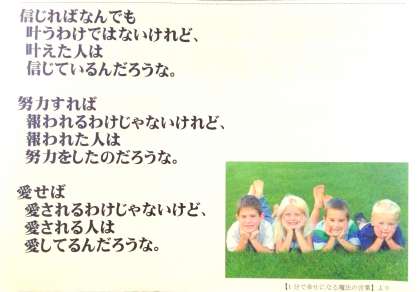 信じればなんでも
叶うわけではないけれど、
叶えた人は
信じているんだろうな。
努力すれば
報われるわけじゃないけれど、
報われた人は
努力をしたのだろうな。
愛せば
愛されるわけじゃないけど、
愛される人は
愛してるんだろうな。
【1分で幸せになる魔法の言葉】より